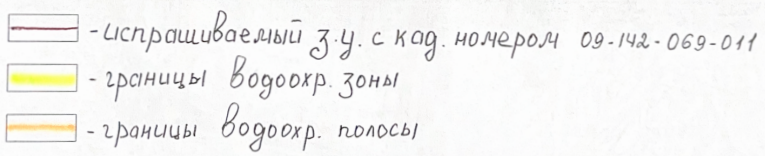 - испрашиваемый з.у. с кад. номером 09-142-069-011
- границы водоохр. зоны
- границы водоохр. полосы